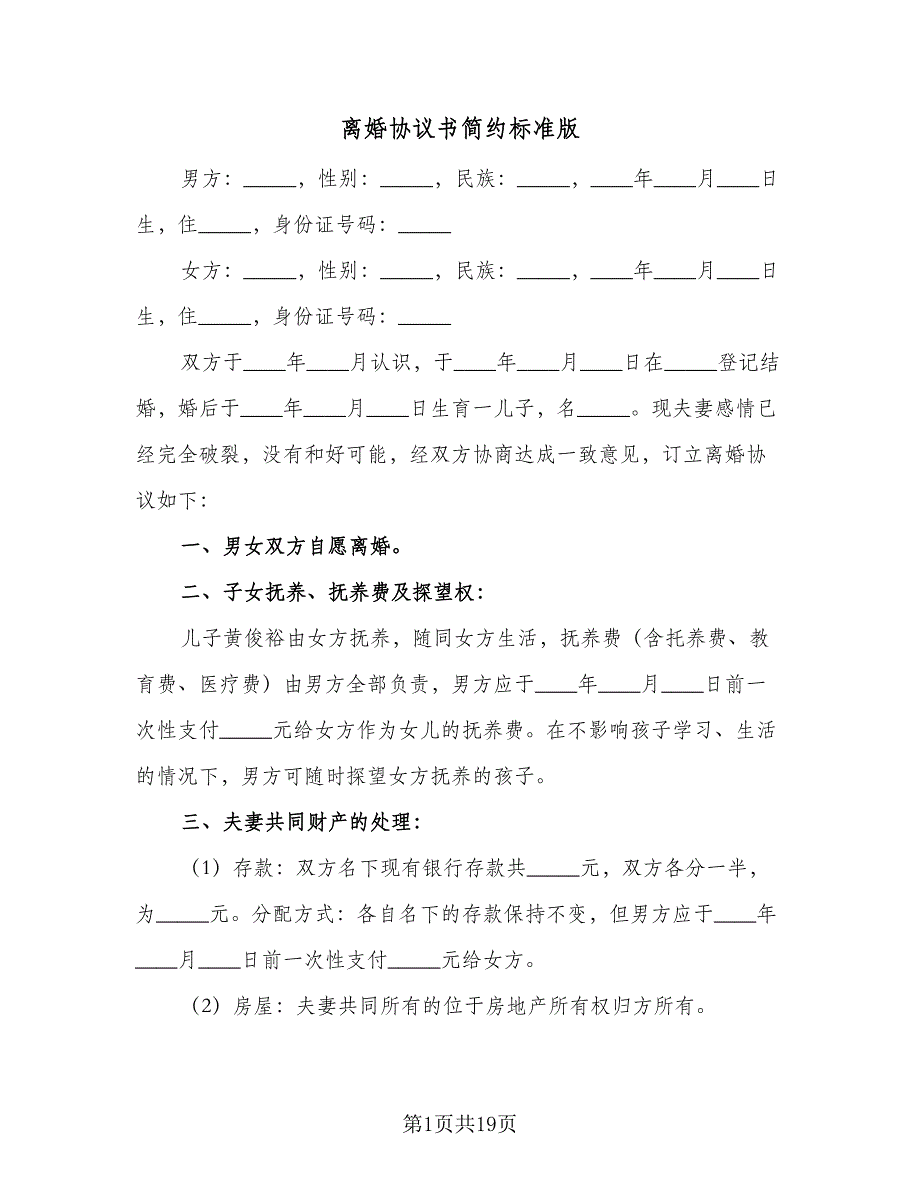 离婚协议书简约标准版
男方：_____，性别：_____，民族：_____，____年____月____日
生，住_____，身份证号码：_____
女方：_____，性别：_____，民族：_____，____年____月____日
生，住_____，身份证号码：_____
双方于____年____月认识，于____年____月____日在_____登记结
婚，婚后于____年____月____日生育一儿子，名_____。现夫妻感情已
经完全破裂，没有和好可能，经双方协商达成一致意见，订立离婚协
议如下：
一、男女双方自愿离婚。
二、子女抚养、抚养费及探望权：
儿子黄俊裕由女方抚养，随同女方生活，抚养费（含托养费、教
育费、医疗费）由男方全部负责，男方应于____年____月____日前一
次性支付_____元给女方作为女儿的抚养费。在不影响孩子学习、生活
的情况下，男方可随时探望女方抚养的孩子。
三、夫妻共同财产的处理：
（1）存款：双方名下现有银行存款共_____元，双方各分一半，
为_____元。分配方式：各自名下的存款保持不变，但男方应于____年
____月____日前一次性支付_____元给女方。
（2）房屋：夫妻共同所有的位于房地产所有权归方所有。
第1页共19页